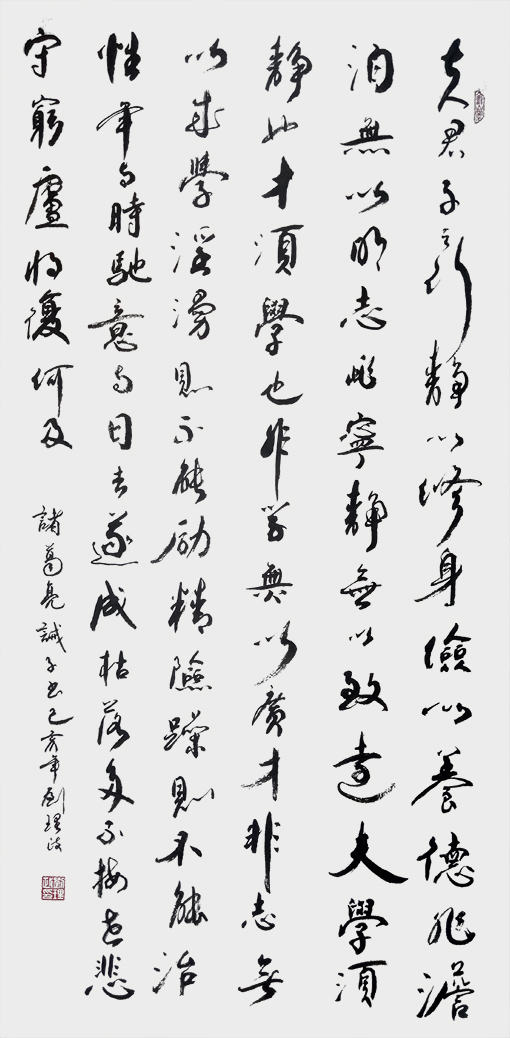 夫君子之行靜以修身儉以養德非澹
泊無以明志非寧靜無以致遠夫學須
靜也才須學也非学無以廣才非志無
以成學淫漫則不能励精險躁則不能治
性年与時馳意与日去遂成枯落多不接世悲
守窮廬將復何及
諸葛亮誡子書己亥年劉理